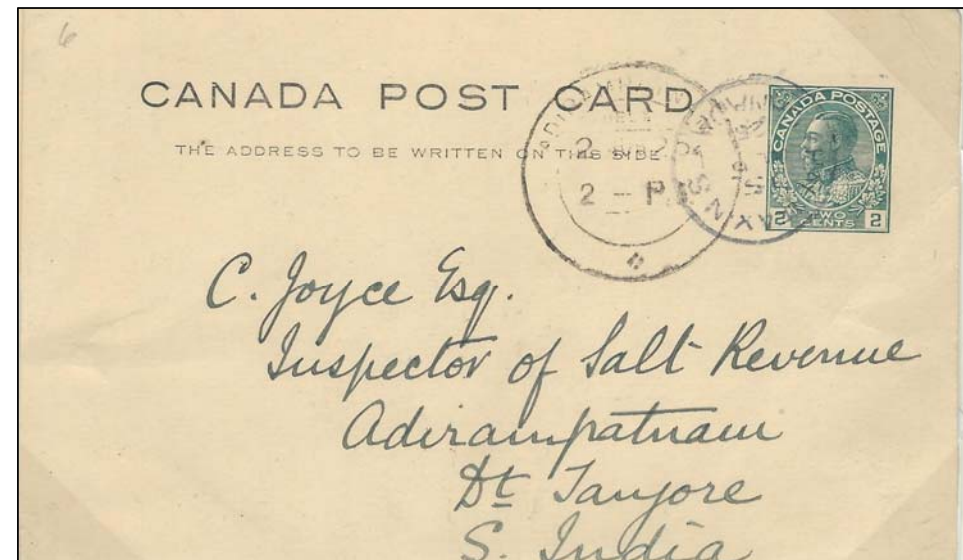 6
CANADA POST CARD
THE ADDRESS TO BE WRITTEN ON THIS SIDE
2
2 - P.
CANADA POSTAGE
2 TWO CENTS 2
C. Joyce Esq.
Inspector of Salt Revenue
Adirampatnam
Dt Tanjore
S. India